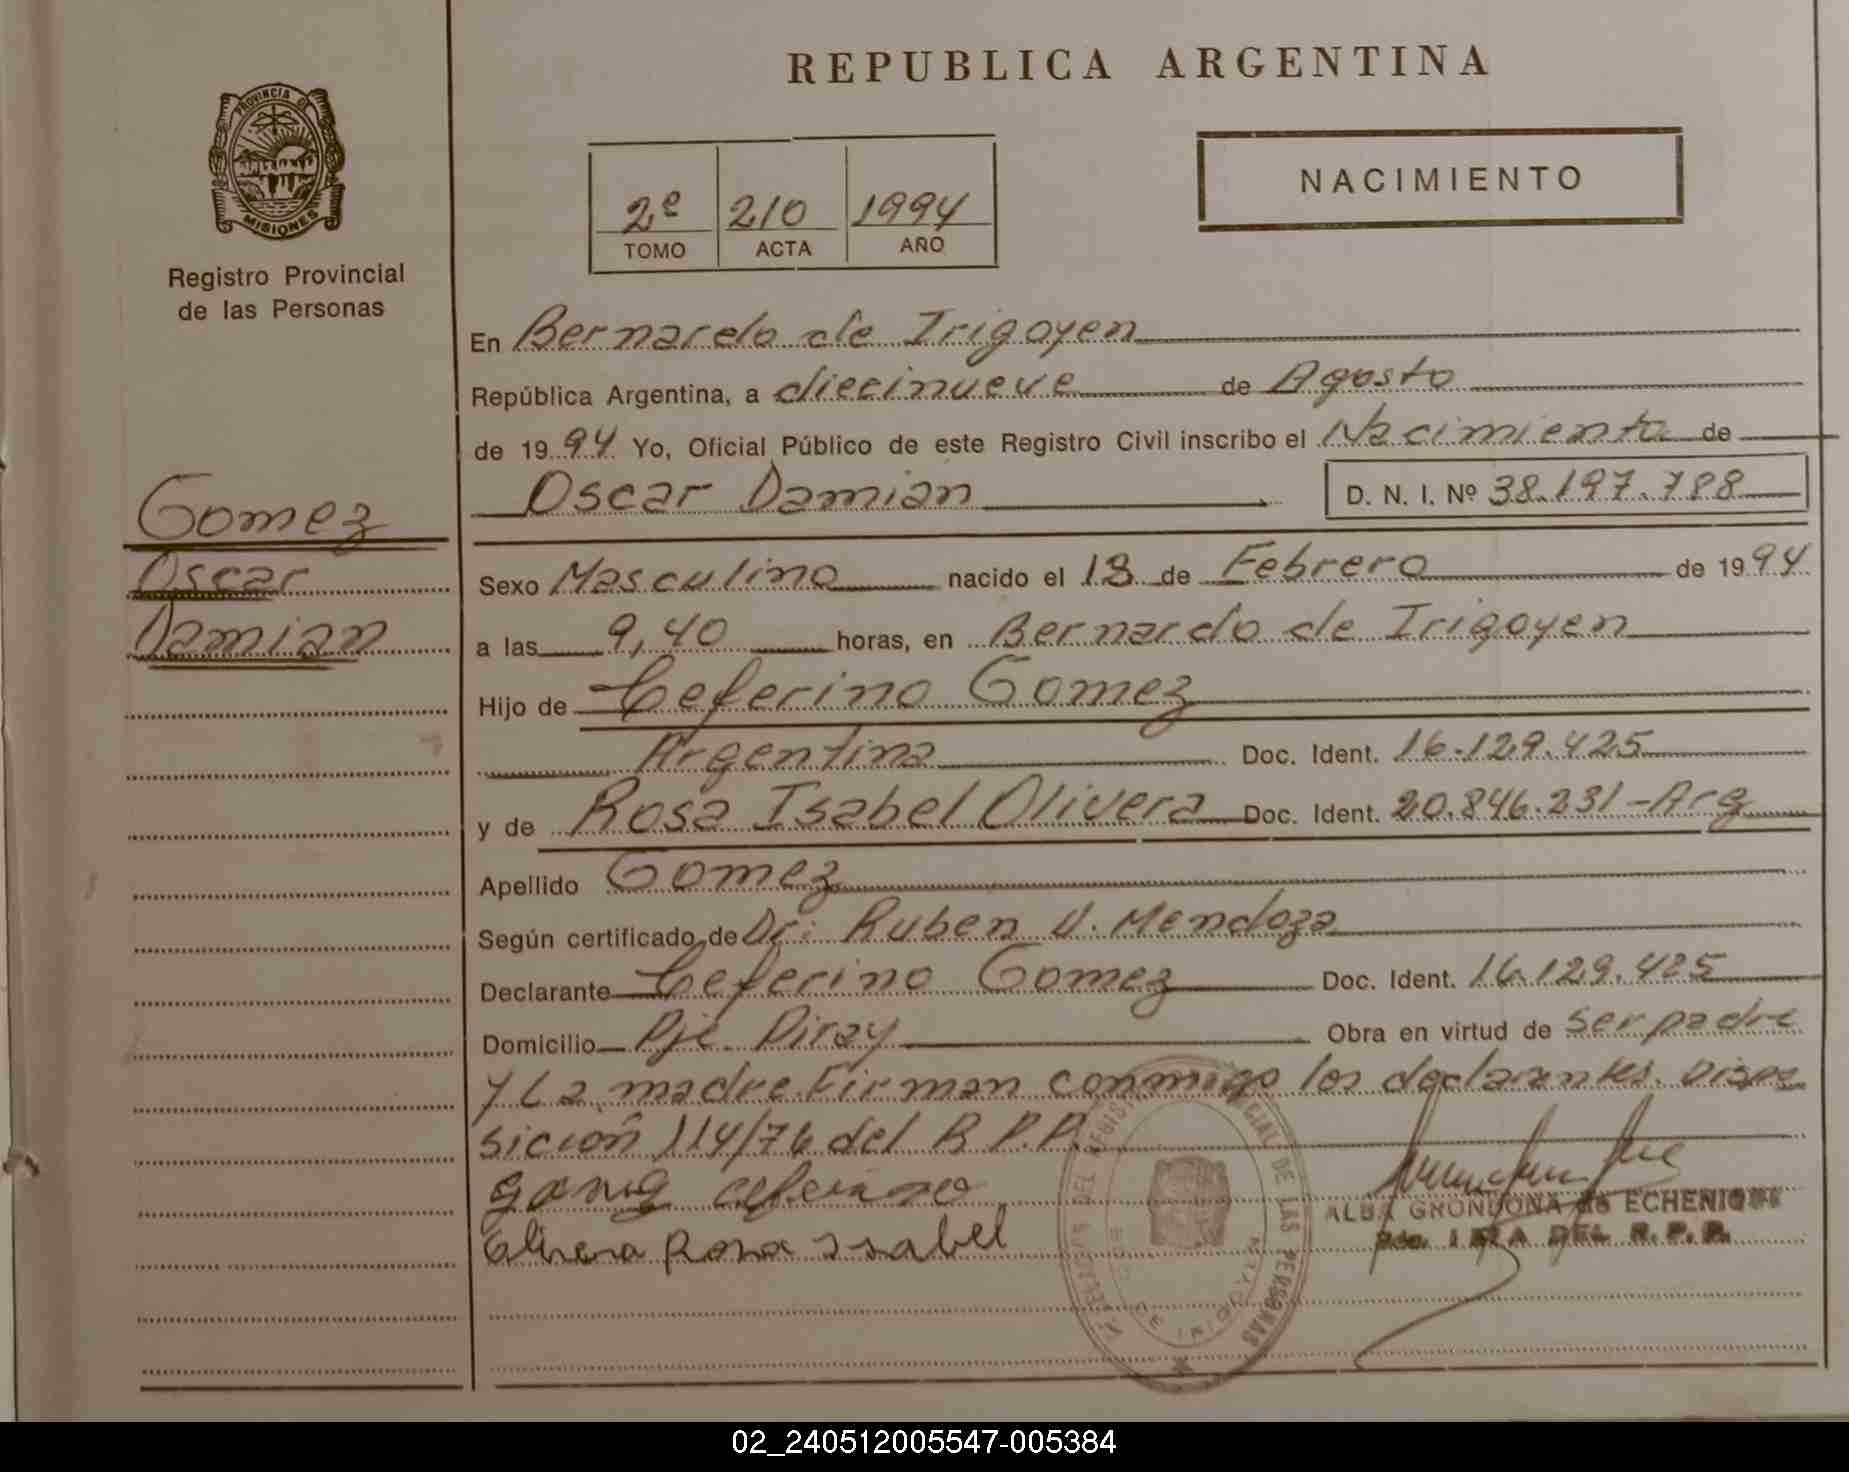 REPUBLICA ARGENTINA
PROVINCIA DE
MISIONES
Registro Provincial
de las Personas
2º 210 1994
TOMO ACTA AÑO
NACIMIENTO
Gomez
Oscar
Damian
En Bernardo de Irigoyen
República Argentina, a diecinueve de Agosto
de 1994 Yo, Oficial Público de este Registro Civil inscribo el Nacimiento de
Oscar Damian D. N. I. Nº 38.197.788
Sexo Masculino nacido el 18 de Febrero de 1994
a las 9,40 horas, en Bernardo de Irigoyen
Hijo de Ceferino Gomez
Argentina Doc. Ident. 16.129.425
y de Rosa Isabel Olivera Doc. Ident. 20.846.231-Arg
Apellido Gomez
Según certificado de Dr: Ruben V. Mendoza
Declarante Ceferino Gomez Doc. Ident. 16.129.425
Domicilio Pje. Piray Obra en virtud de ser padre
y La madre. Firman conmigo los declarantes. Dispo
sición 114/76 del R.P.P.
gomez ceferino
Olivera Rosa Isabel
DE LAS PERSONAS
ALBA GRONDONA de ECHENIQUE
DEL R. P. P.
02_240512005547-005384